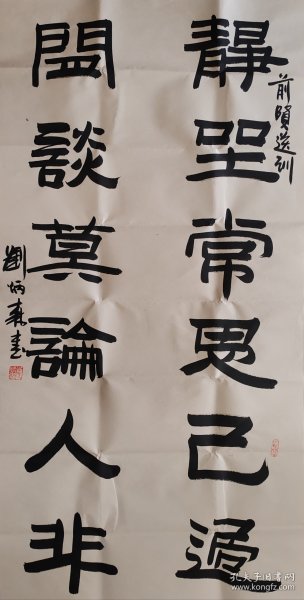 前賢遺訓
靜坐常思己過
閒談莫論人非
劉炳森書
孔夫子旧书网
www.kongfz.com